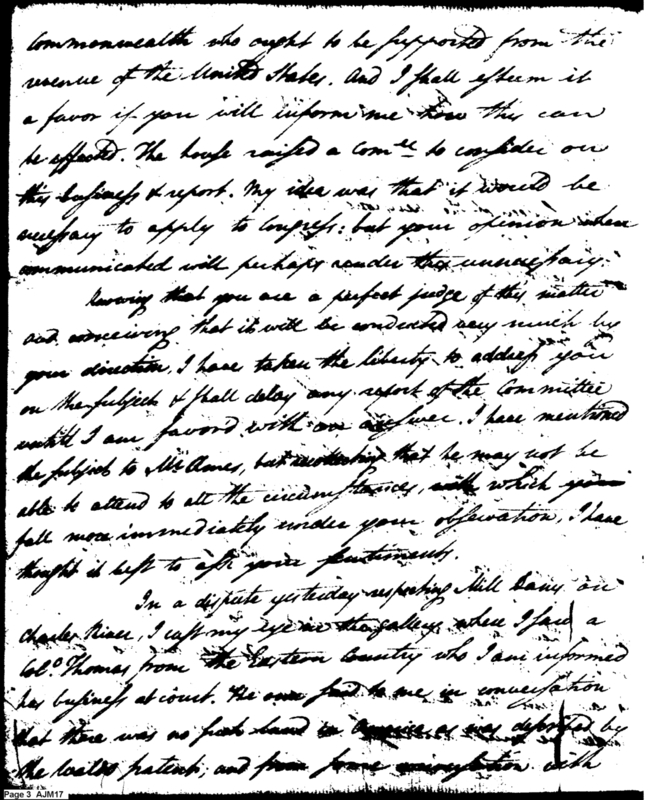 Commonwealth who ought to be supported from the
revenue of the United States. And I shall esteem it
a favor if you will inform me how this can
be affected. The house raised a Com.ee to consider on
this business & report. My idea was that it would be
necessary to apply to Congress: but your opinion when
communicated will perhaps render this unnecessary.
Knowing that you are a perfect judge of this matter
and conceiving that it will be conducted very much by
your direction, I have taken the liberty to address you
on the subject & shall delay any report of the Committee
untill I am favord with an answer. I have mentioned
the subject to Mr Ames, but that he may not be
able to attend to all the circumstances, which
fall more immediately under your observation, I have
thought it best to ask your sentiments.
In a dispute yesterday respecting Mill Dams on
Charles River, I cast my eye in the gallery where I saw a
Colo. Thomas from the Eastern Country who I am informed
has business at court. He said to me in conversation
that there was no such land in America as was described by
the Waldo patent; and from some with
Page 3 AJM17